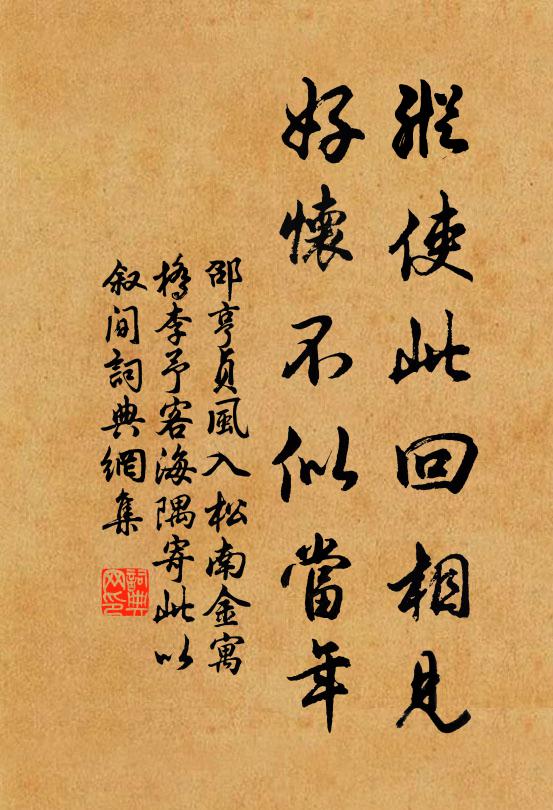 縱使此回相見
好懷不似當年
邵亨貞風入松南金寓
檇李予客海隅寄此以
叙间詞典網集
詞典
网印